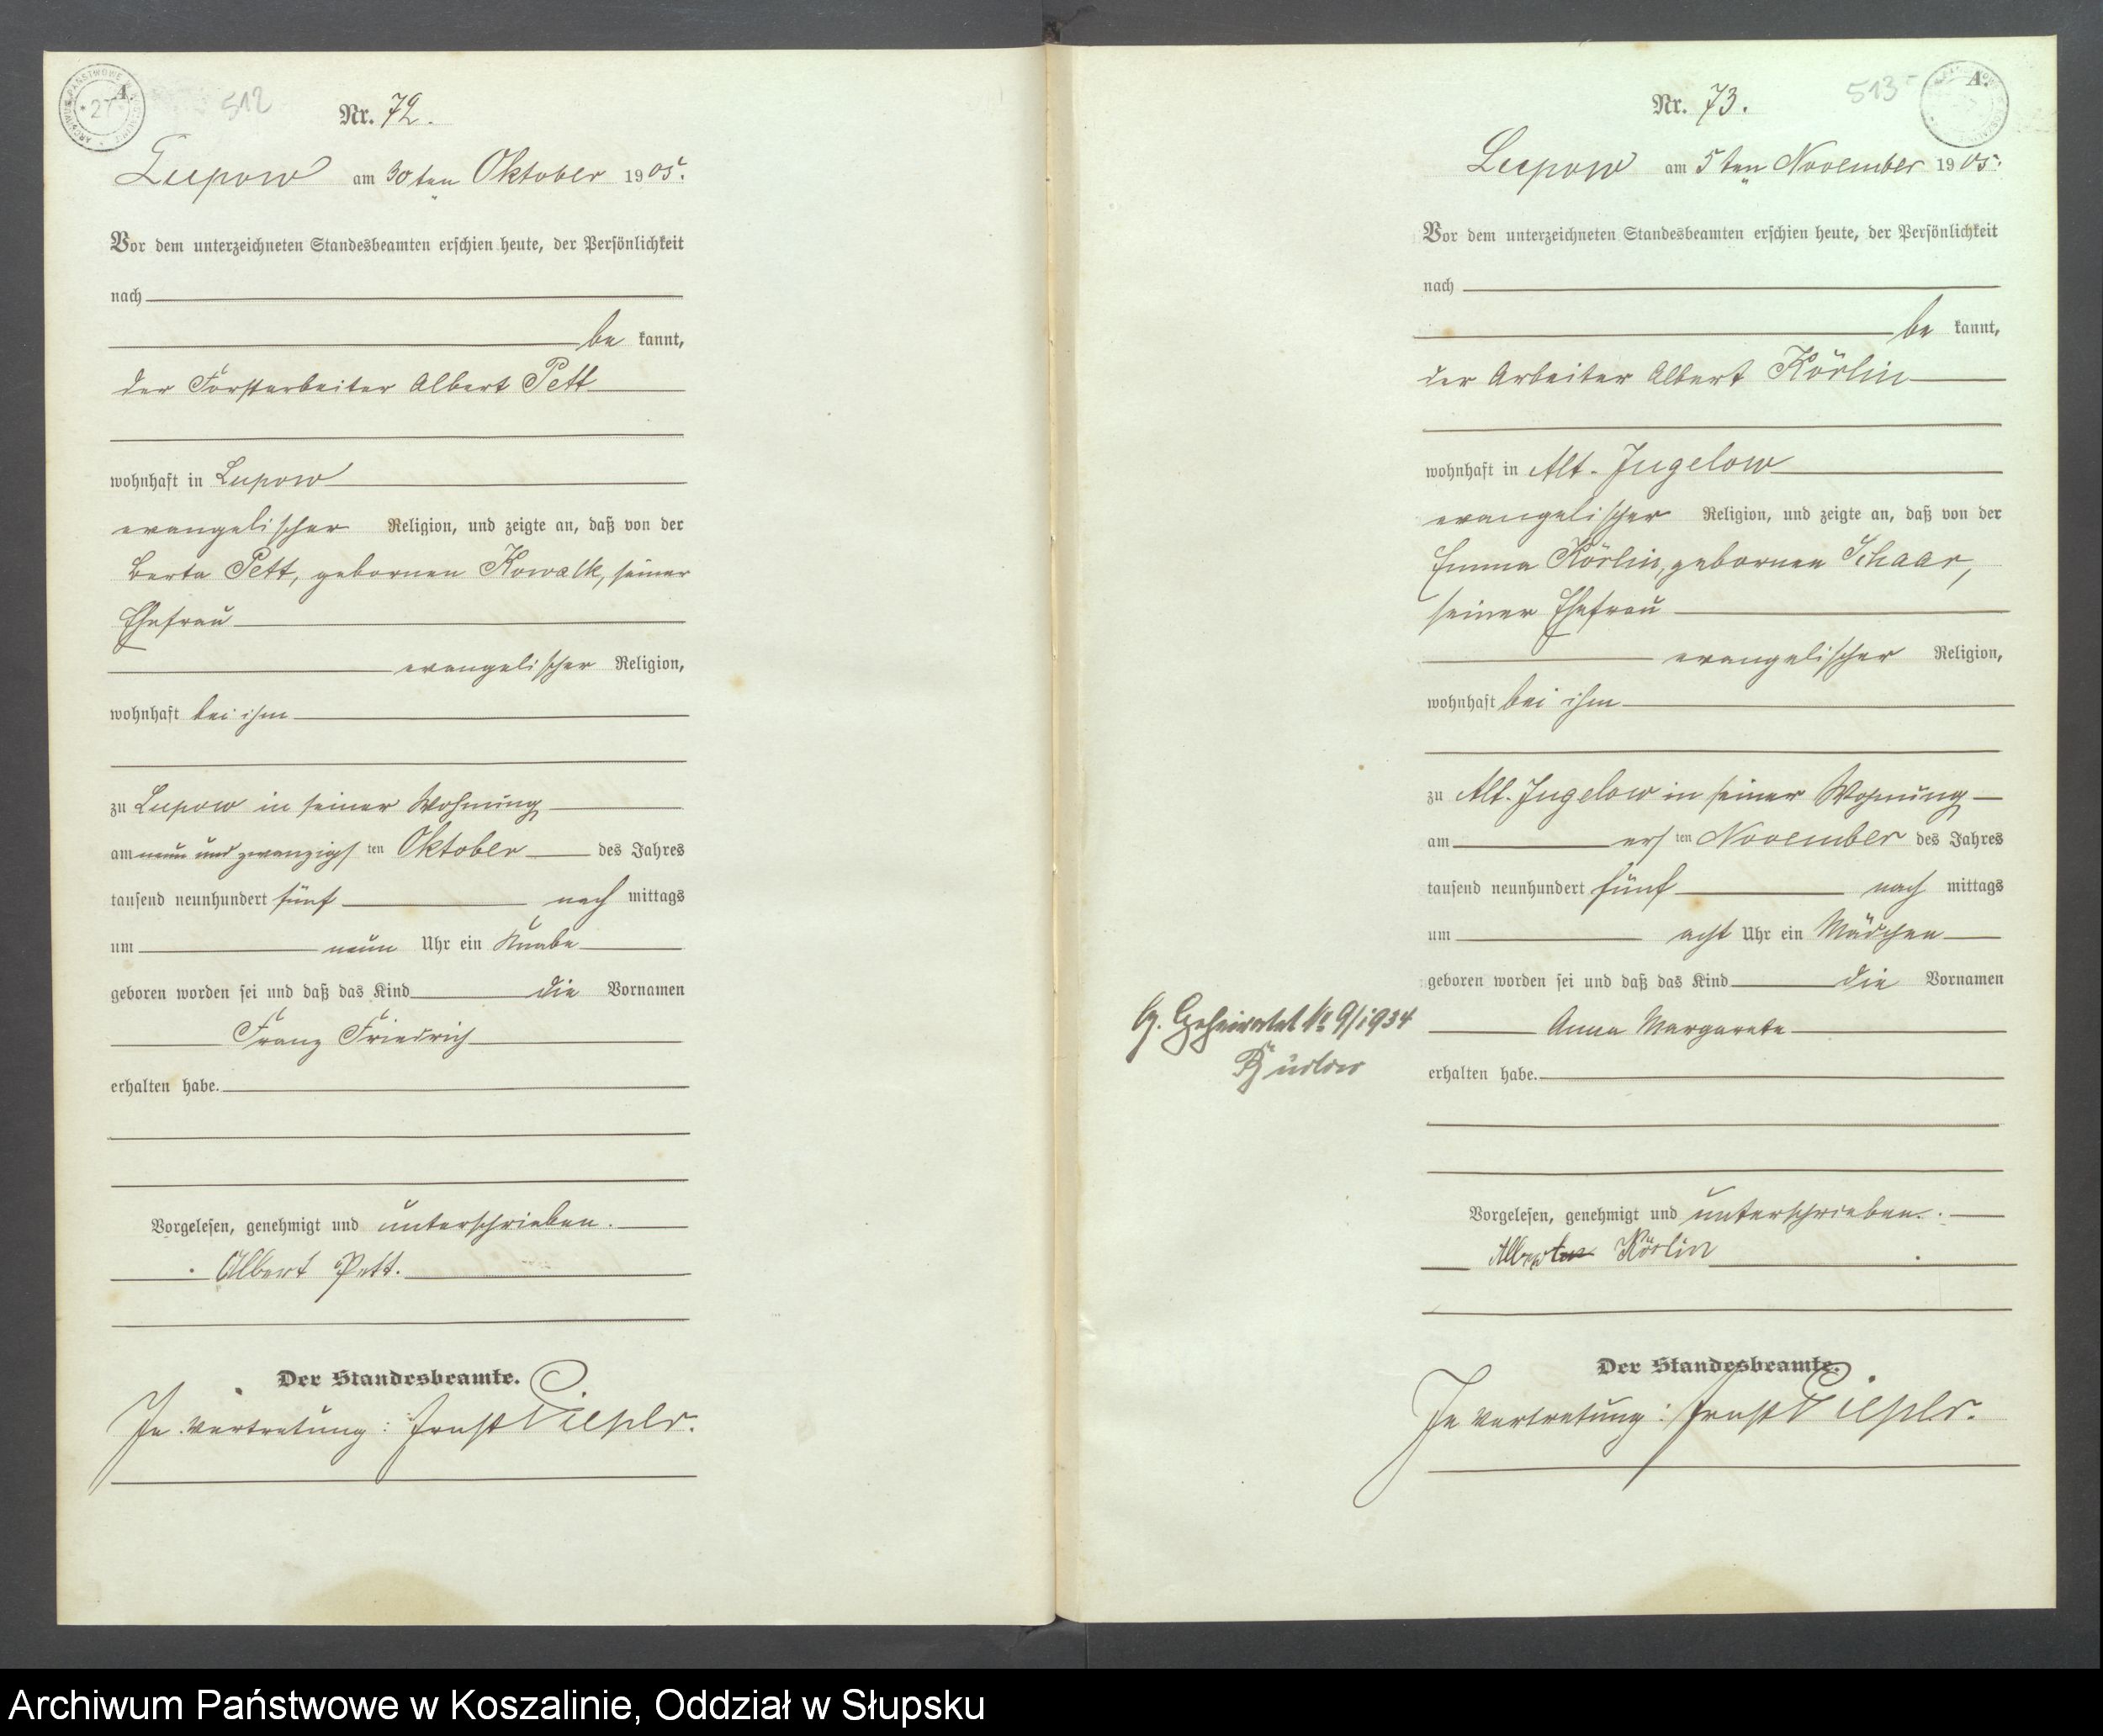 A
512
Nr. 72.
Lupow am 30ten Oktober 1905.
Vor dem unterzeichneten Standesbeamten erschien heute, der Persönlichkeit
nach
be kannt,
der Forstarbeiter Albert Pett
wohnhaft in Lupow
evangelischer Religion, und zeigte an, daß von der
Berta Pett, gebornen Kowalk, seiner
Ehefrau
evangelischer Religion,
wohnhaft bei ihm
zu Lupow in seiner Wohnung
am neun und zwanzigsten Oktober des Jahres
tausend neunhundert fünf nach mittags
um neun Uhr ein Knabe
geboren worden sei und daß das Kind die Vornamen
Franz Friedrich
erhalten habe.
Vorgelesen, genehmigt und unterschrieben.
Albert Pett.
Der Standesbeamte.
In Vertretung: Ernst
513
A.
Nr. 73.
Lupow am 5ten November 1905.
Vor dem unterzeichneten Standesbeamten erschien heute, der Persönlichkeit
nach
be kannt,
der Arbeiter Albert Körlin
wohnhaft in Alt-Jugelow
evangelischer Religion, und zeigte an, daß von der
Emma Körlin, gebornen Schaar,
seiner Ehefrau
evangelischer Religion,
wohnhaft bei ihm
zu Alt-Jugelow in seiner Wohnung
am ersten November des Jahres
tausend neunhundert fünf nach mittags
um acht Uhr ein Mädchen
geboren worden sei und daß das Kind die Vornamen
Anna Margarete
erhalten habe.
Vorgelesen, genehmigt und unterschrieben.
Körlin
Der Standesbeamte.
In Vertretung: Ernst
Geheiratet No 9/1934
Archiwum Państwowe w Koszalinie, Oddział w Słupsku